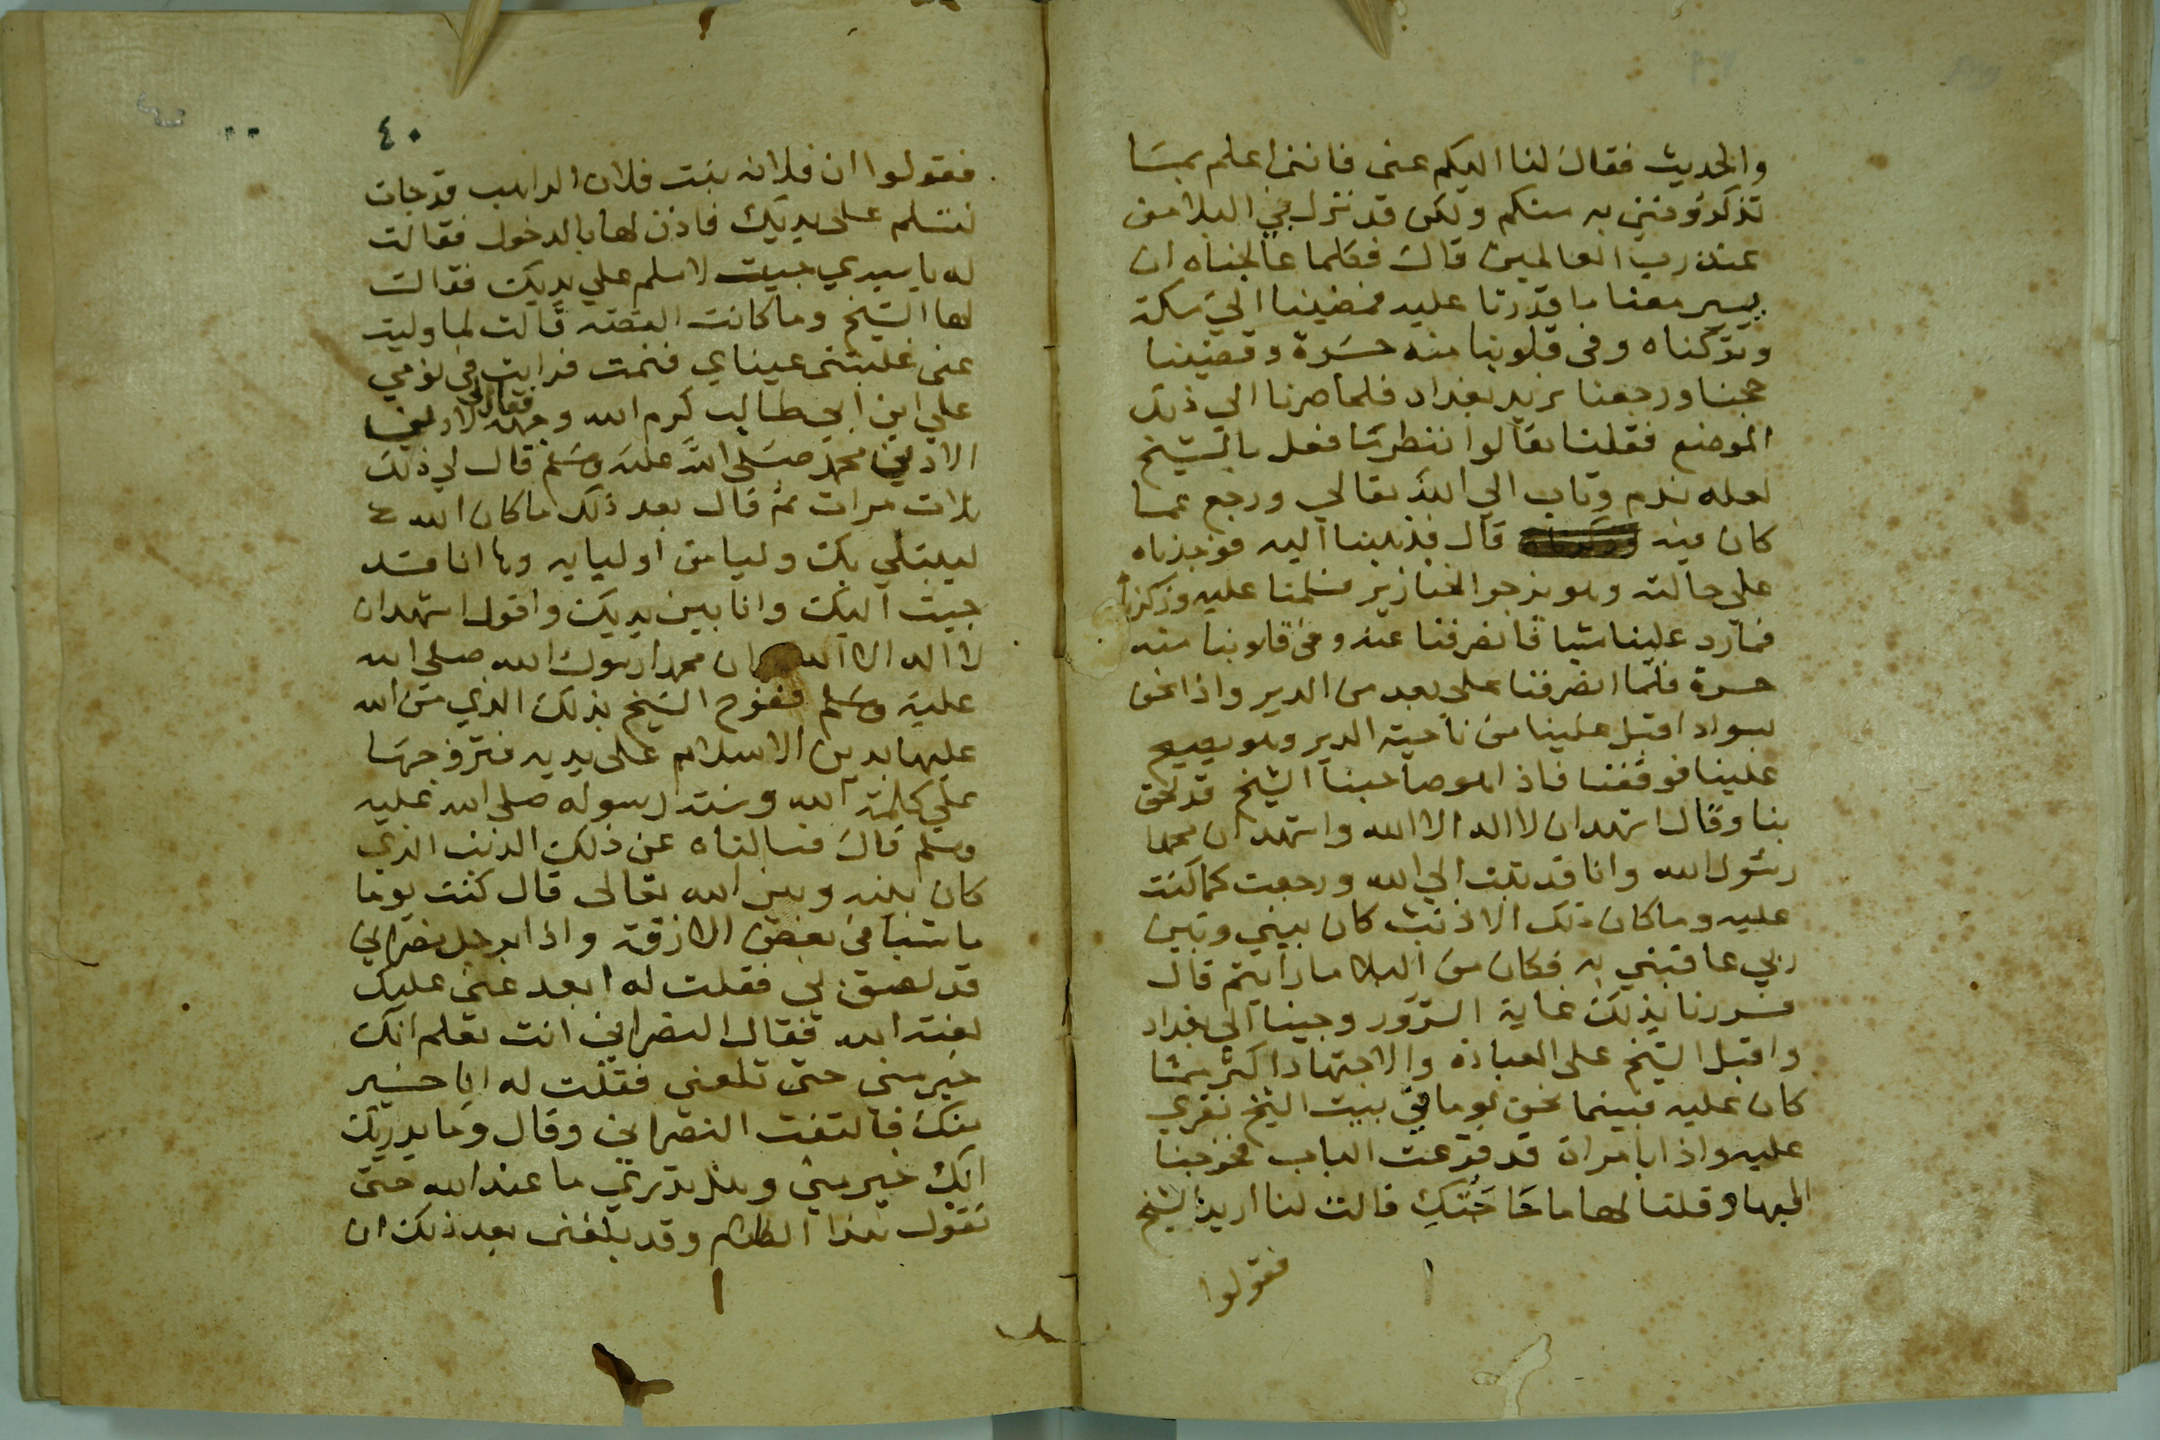 والحديث فقال لنا اليكم عنى فاننى اعلم بمسا
تذكرونني به منكم ولكن قد نزل بي البلا من
عند رب العالمين قال فكلما عالجناه ان
يسير معنا ما قدرنا عليه فمضينا الي مكة
وتركناه وفي قلوبنا منه حسرة وقضينا
حجنا ورجعنا نريد بغداد فلما صرنا الي ذلك
الموضع فقلنا تعالوا ننظر ما فعل بالشيخ
لعله ندم وتاب الي الله تعالي ورجع عما
كان فيه قال فذهبنا اليه فوجدناه
علي حالته وهو يزجر الخنازير فسلمنا عليه وذكرناه
فما رد علينا شيا فانصرفنا عنه وفي قلوبنا منه
حسرة فلما انصرفنا علي بعد من الدير واذا نحن
بسواد اقبل علينا من ناحية الدير وهو يصيح
علينا فوقفنا فاذا هو صاحبنا الشيخ قد لحق
بنا وقال اشهد ان لا اله الا الله واشهد ان محمدا
رسول الله وانا قد تبت الي الله ورجعت كما كنت
عليه وما كان ذلك الا ذنب كان بيني وبين
ربي عاقبني به فكان من البلا ما رايتم قال
فسررنا بذلك غاية السرور وجينا الي بغداد
واقبل الشيخ على العبادة والاجتهاد اكثر مما
كان عليه فبينما نحن يوما في بيت الشيخ نقري
عليه واذا بامراة قد قرعت الباب فخرجنا
اليها وقلنا لها ما حاجتك قالت لنا اريد الشيخ
فقولوا
٤٠
فقولوا ان فلانه بنت فلان الراهب قد جات
لتسلم على يديك فاذن لها بالدخول فقالت
له يا سيدي جيت لاسلم علي يديك فقال
لها الشيخ وما كانت القصة قالت لما وليت
عنى غلبتنى عيناي فنمت فرايت في نومي
علي ابن ابي طالب كرم الله وجهه فقال لي لا دين
الا دين محمد صلى الله عليه وسلم قال لي ذلك
ثلاث مرات ثم قال بعد ذلك ما كان الله
ليبتلي بك وليا من اوليايه وها انا قد
جيت اليك وانا بين يديك واقول اشهد ان
لا اله الا الله وان محمدا رسول الله صلى الله
عليه وسلم ففرح الشيخ بذلك الذي من الله
عليها بدين الاسلام على يديه فتزوجها
علي كلمة الله وسنة رسوله صلى الله عليه
وسلم قال فسالناه عن ذلك الذنب الذي
كان بينه وبين الله تعالى قال كنت يوما
ماشيا في بعض الازقة واذا برجل نصراني
قد لصق بي فقلت له ابعد عنى عليك
لعنة الله فقال النصراني انت تعلم انك
خير منى حتى تلعنى فقلت له انا خير
منك فالتفت النصراني وقال وما يدريك
انك خير مني وهل تدري ما عند الله حتى
تقول هذا الكلام وقد بلغنى بعد ذلك ان